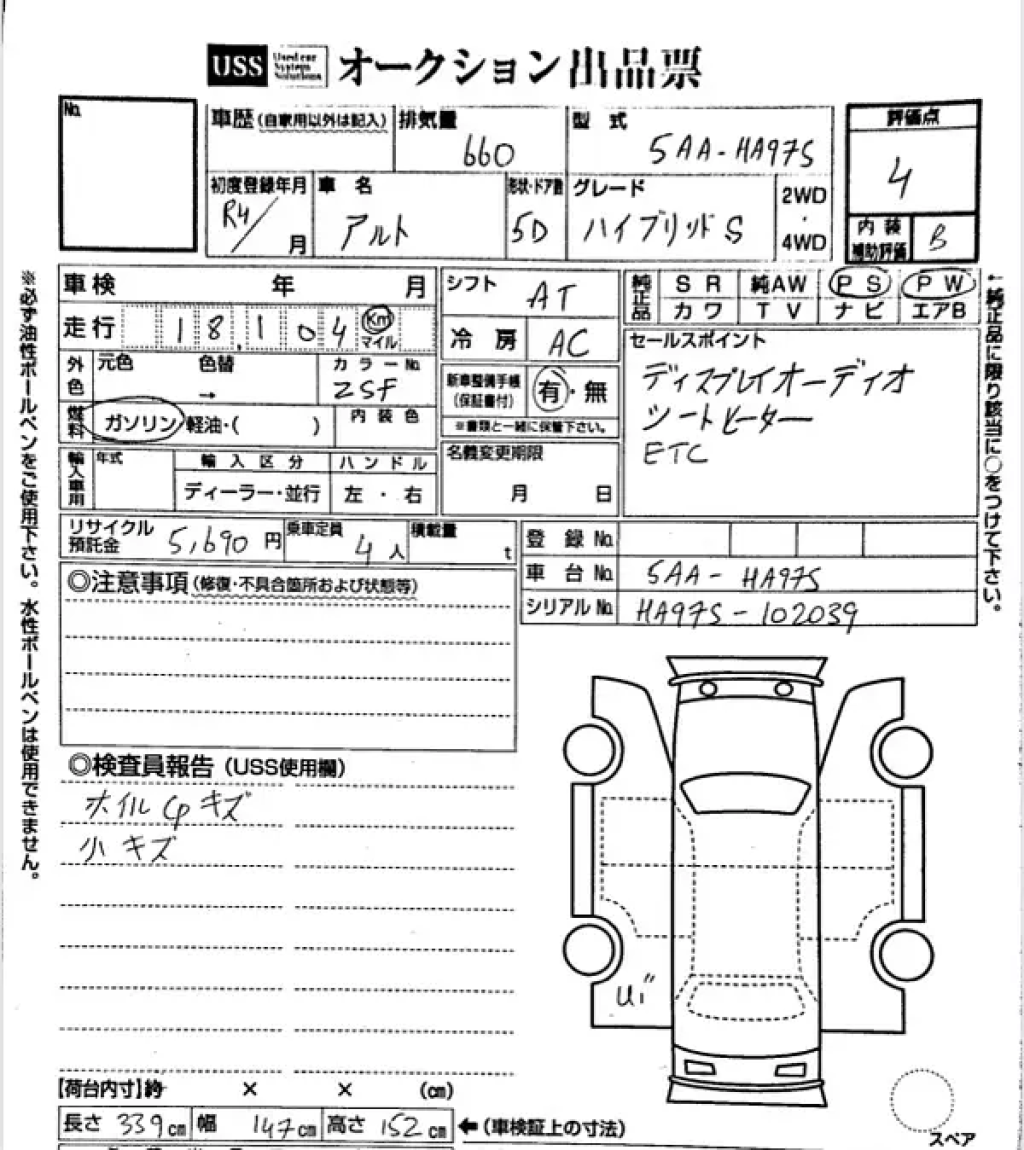 USS Used car System Solutions オークション出品票
No.
車歴(自家用以外は記入)
排気量 660
型式 5AA-HA97S
評価点 4
初度登録年月 R4/ 月
車名 アルト
形状・ドア数 5D
グレード ハイブリッド S
2WD・4WD
内装補助評価 B
車検 年 月
シフト AT
純正品 SR 純AW PS PW
カワ TV ナビ エアB
走行 18,104 Km マイル
冷房 AC
セールスポイント
ディスプレイオーディオ
シートヒーター
ETC
外色 元色 色替 →
カラーNo. ZSF
新車整備手帳(保証書付) 有・無
※書類と一緒に保管下さい。
燃料 ガソリン・軽油・( )
内装色
輸入車用 年式 輸入区分 ハンドル
ディーラー・並行 左・右
名義変更期限
月 日
リサイクル預託金 5,690円
乗車定員 4人
積載量 t
登録No.
車台No. 5AA-HA97S
シリアルNo. HA97S-102039
◎注意事項(修復・不具合箇所および状態等)
◎検査員報告(USS使用欄)
ホイルCpキズ
小キズ
U1"
【荷台内寸】約 × × (cm)
長さ 339cm 幅 147cm 高さ 152cm ←(車検証上の寸法)
スペア
※必ず油性ボールペンをご使用下さい。水性ボールペンは使用できません。
←純正品に限り該当に○をつけて下さい。